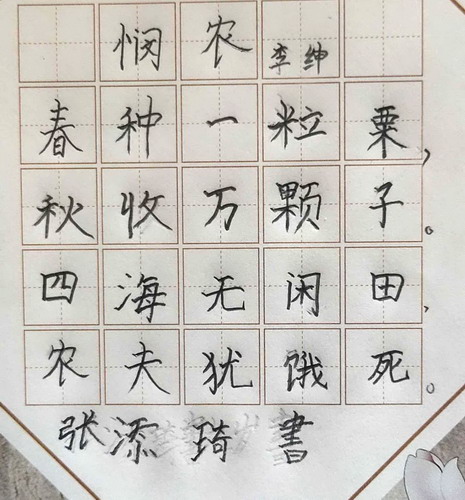 悯农 李绅
春种一粒粟，
秋收万颗子。
四海无闲田，
农夫犹饿死。
张添琦書